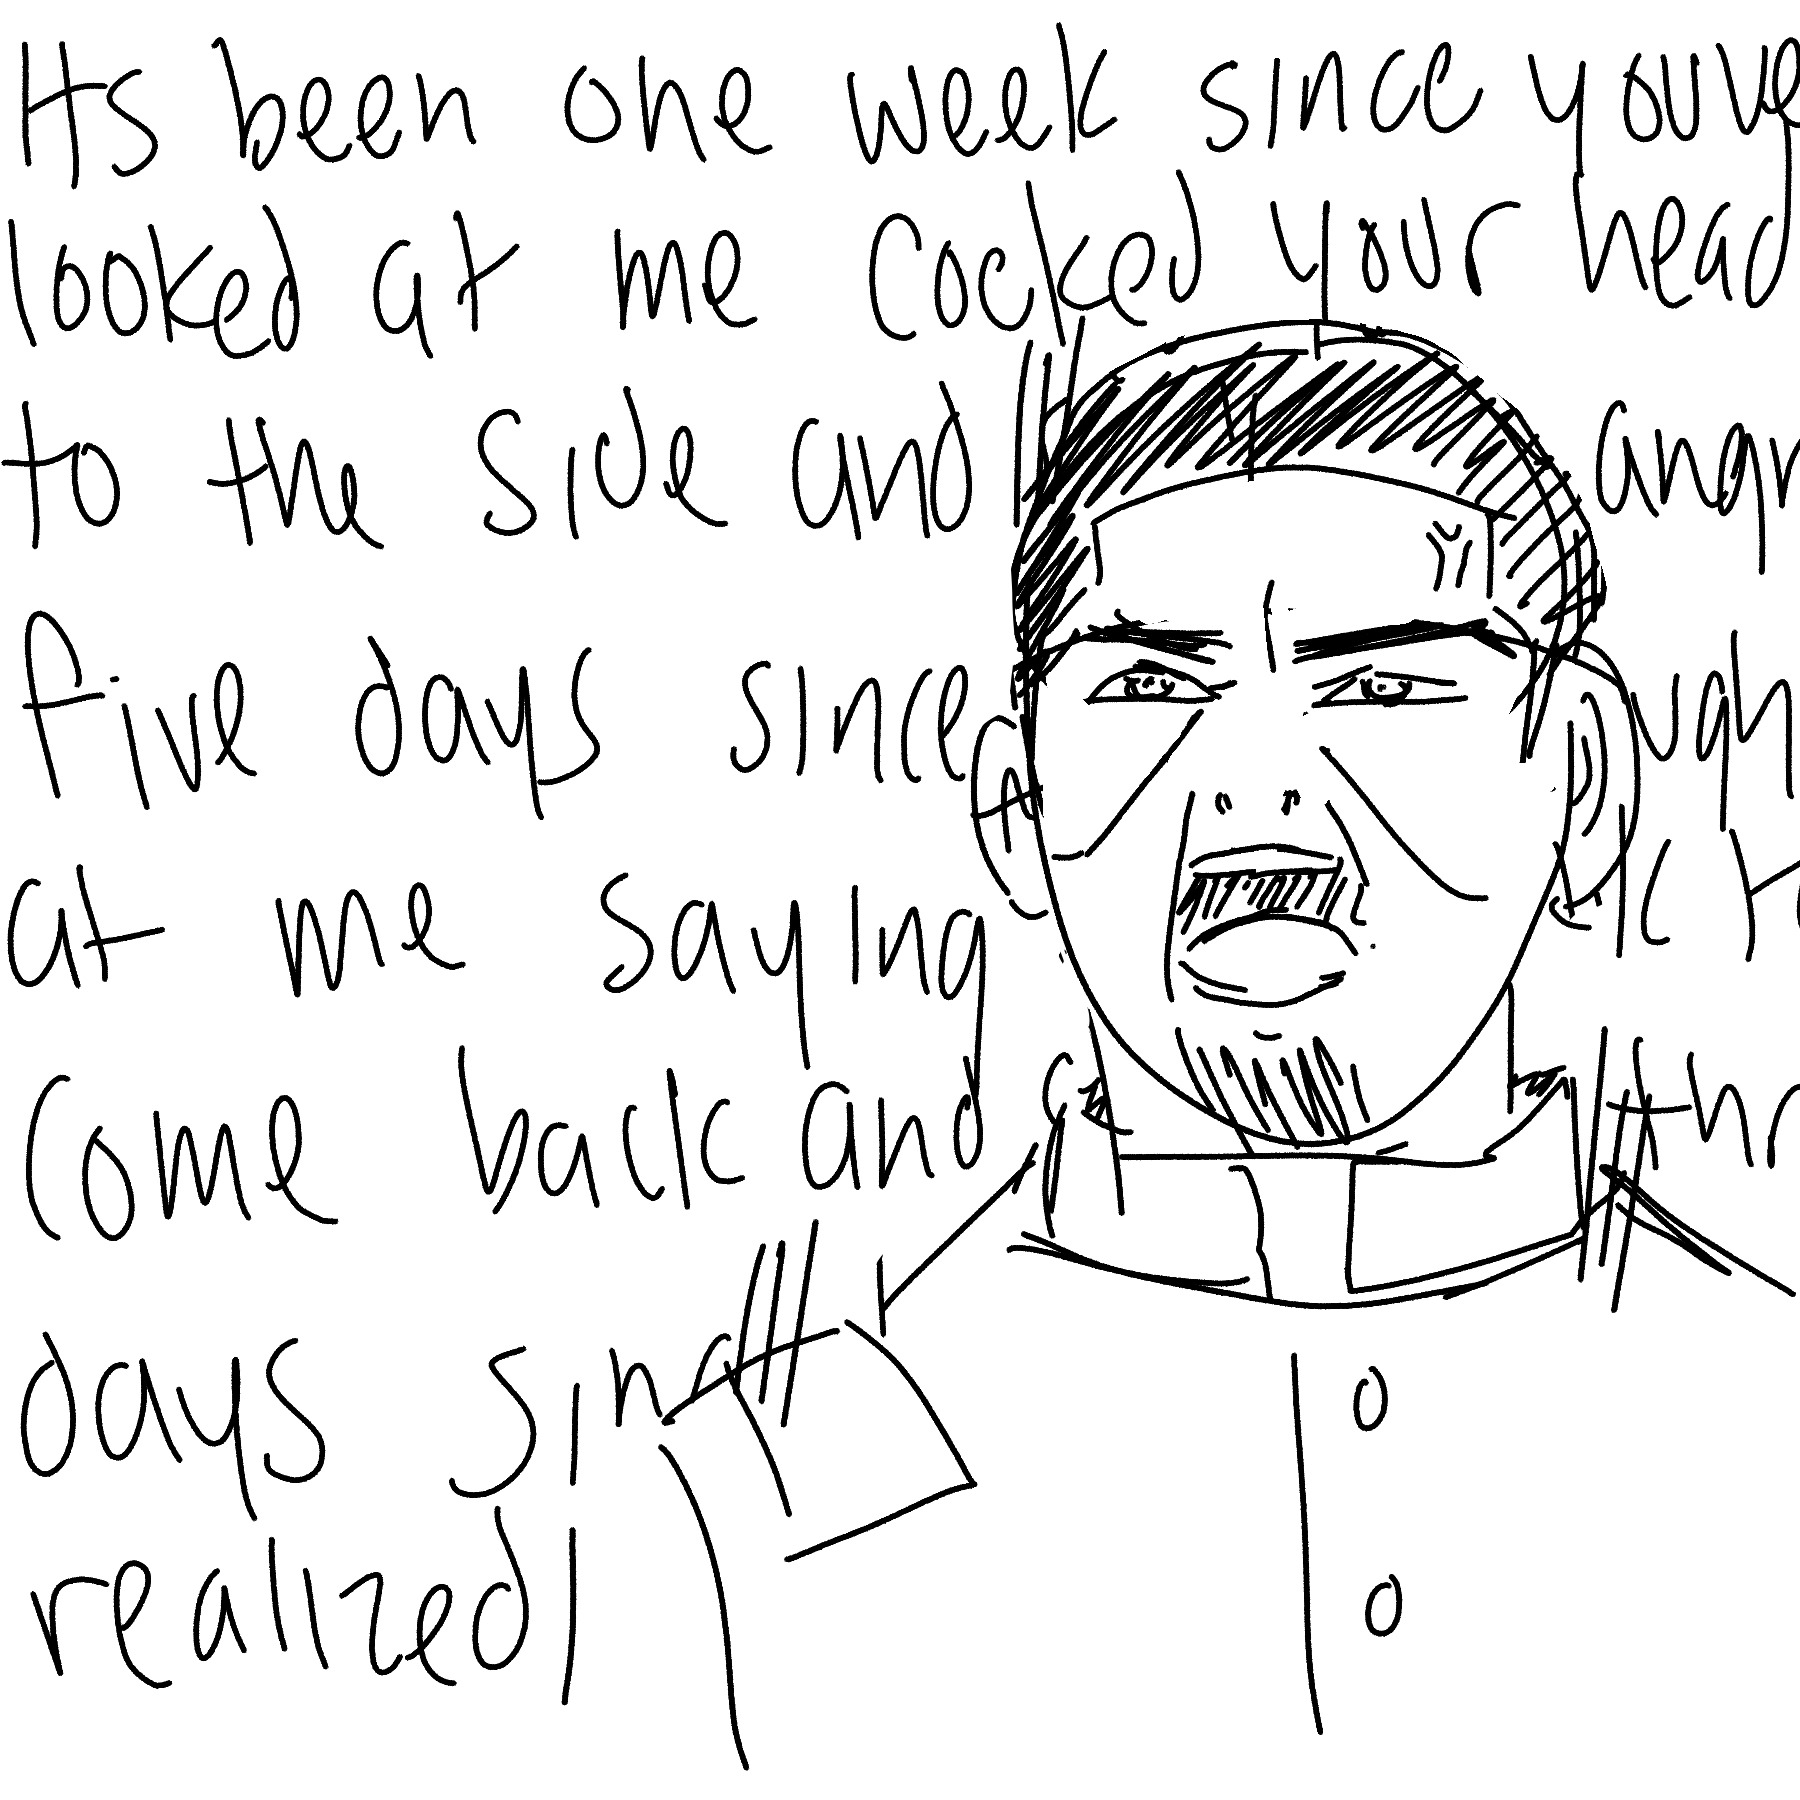 Its been one week since youve
looked at me cocked your head
to the side and angr
five days since ugh
at me saying
come back and thr
days sin
realized I